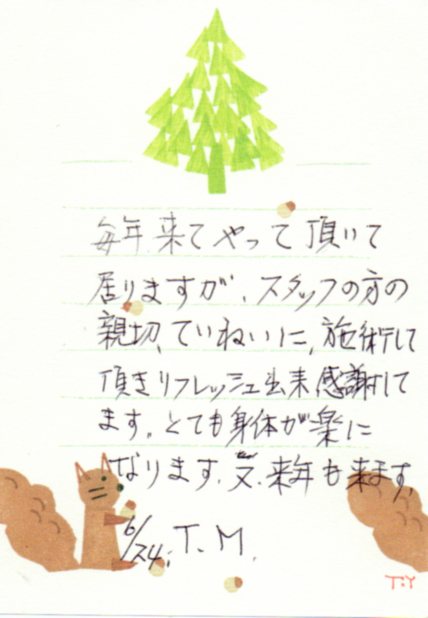 毎年来てやって頂いて
居りますが、スタッフの方の
親切、ていねいに、施術して
頂きリフレッシュ出来感謝して
ます。とても身体が楽に
なります。又、来年も来ます。
6/24. T. M.
T.Y